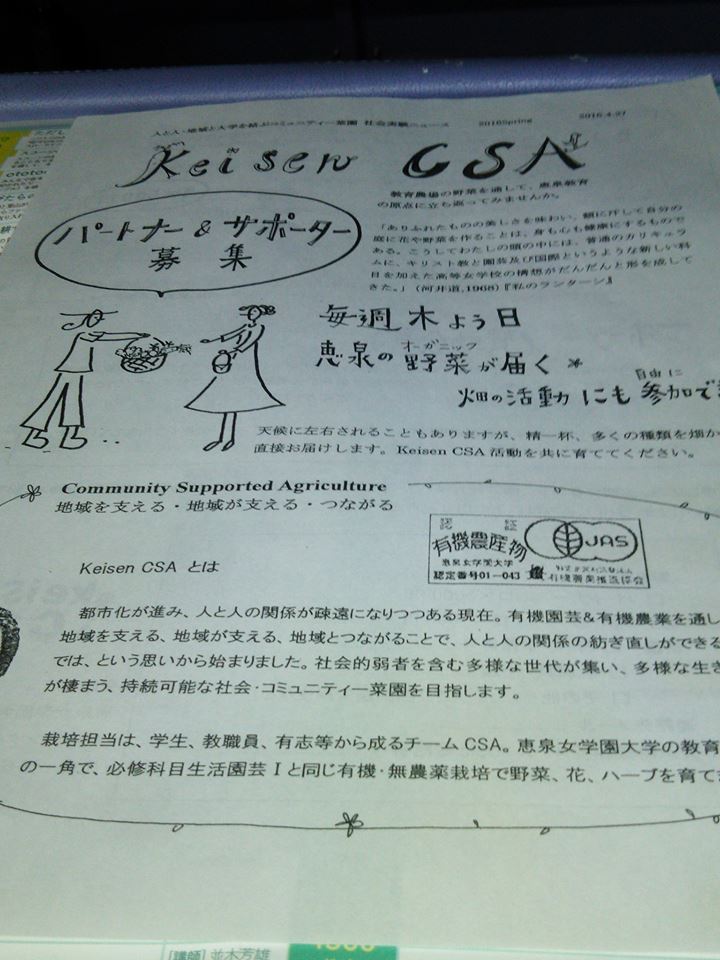 人と人・地域と大学を結ぶコミュニティー菜園 社会実験ニュース 2016Spring 2016.4.27
Keisen CSA
教育農場の野菜を通して、恵泉教育
の原点に立ち返ってみませんか。
パートナー & サポーター
募集
「ありふれたものの美しさを味わい、額に汗して自分の
庭に花や野菜を作ることは、身も心も健康にするもので
ある。こうしてわたしの頭の中には、普通のカリキュラ
ムに、キリスト教と園芸及び国際というような新しい科
目を加えた高等女学校の構想がだんだんと形を成して
きた。」(河井道,1968)『私のランターン』
毎週木よう日
オーガニック
恵泉の野菜が届く
自由に
畑の活動にも参加で
天候に左右されることもありますが、精一杯、多くの種類を畑か
直接お届けします。Keisen CSA 活動を共に育ててください。
Community Supported Agriculture
地域を支える・地域が支える・つながる
認 証
有機農産物
JAS
恵泉女学園大学
認定番号01-043
Keisen CSA とは
都市化が進み、人と人の関係が疎遠になりつつある現在。有機園芸&有機農業を通し
地域を支える、地域が支える、地域とつながることで、人と人の関係の紡ぎ直しができる
では、という思いから始まりました。社会的弱者を含む多様な世代が集い、多様な生き
が棲まう、持続可能な社会・コミュニティー菜園を目指します。
栽培担当は、学生、教職員、有志等から成るチーム CSA。恵泉女学園大学の教育
の一角で、必修科目生活園芸Ⅰと同じ有機・無農薬栽培で野菜、花、ハーブを育て
[講師] 並木芳雄